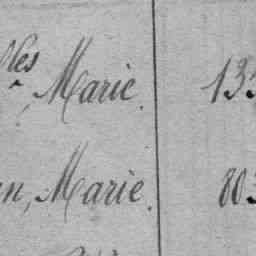 les, Marie. 133
n, Marie. 803